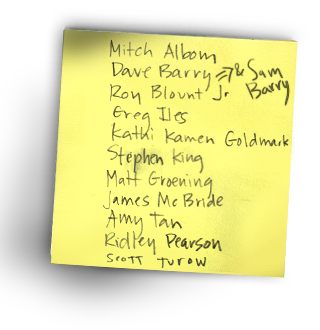 Mitch Albom
Dave Barry → & Sam Barry
Roy Blount Jr
Greg Iles
Kathi Kamen Goldmark
Stephen King
Matt Groening
James McBride
Amy Tan
Ridley Pearson
Scott Turow